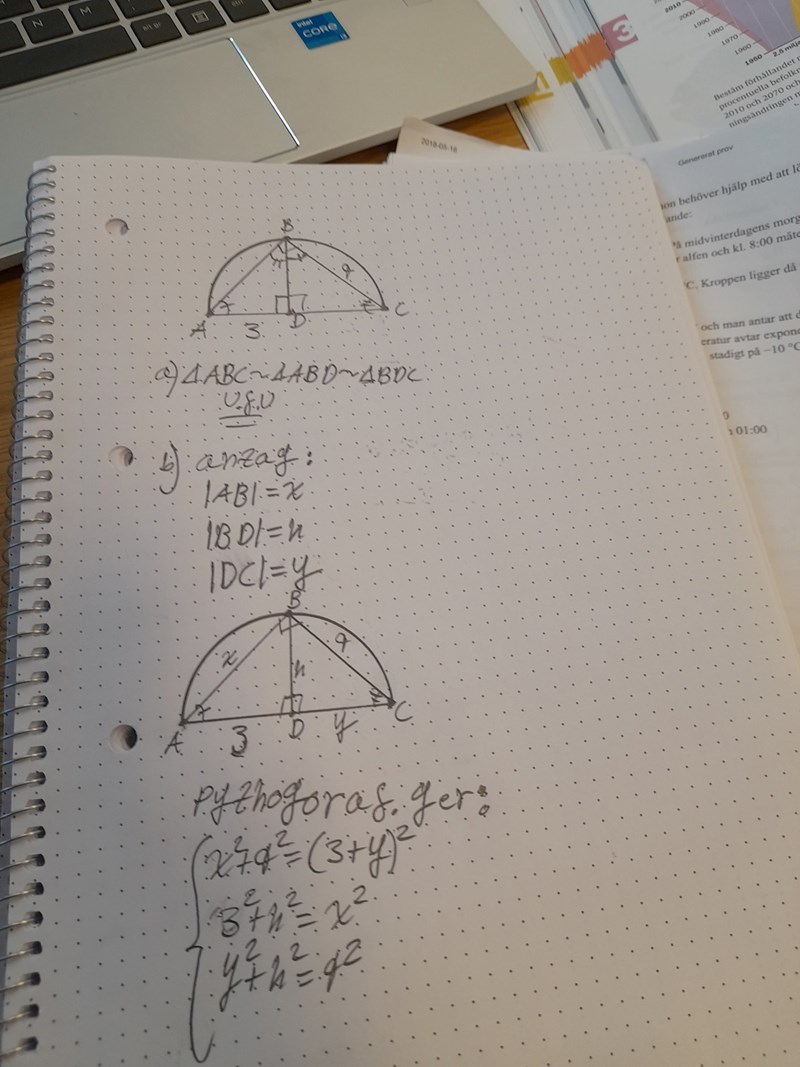 intel
CORE
i3
alt gr
ctrl
3
1
2010
2000
1990
1980
1970
1960
1950
2,5 milj
Bestäm förhållandet
procentuella befolkn
2010 och 2070 och
ningsändringen
2018-08-16
Genererat prov
son behöver hjälp med att lö
ande:
På midvinterdagens morg
r alfen och kl. 8:00 mäte
°C. Kroppen ligger då
och man antar att d
eratur avtar expon
stadigt på −10 °C
01:00
B
A 3 D C
a) ΔABC~ΔABD~ΔBDC
V.S.V
b) antag:
|AB|=x
|BD|=h
|DC|=y
B
x h
A 3 D y C
Pythagoras. ger:
(3+y)²
3²+h²=x²
y²+h²=